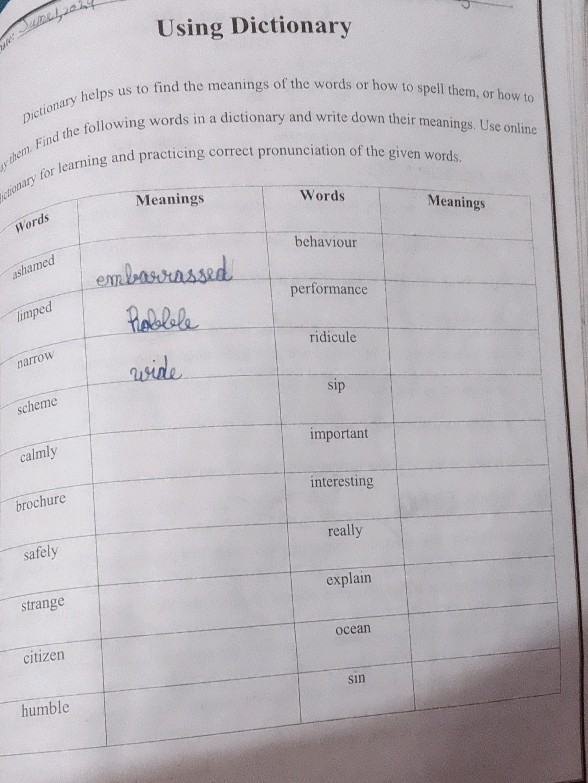 June 1, 2024
Using Dictionary
Dictionary helps us to find the meanings of the words or how to spell them, or how to
them. Find the following words in a dictionary and write down their meanings. Use online
for learning and practicing correct pronunciation of the given words.
Words Meanings Words Meanings
ashamed embarrassed behaviour
limped hobble performance
narrow wide ridicule
scheme sip
calmly important
brochure interesting
safely really
strange explain
citizen ocean
humble sin